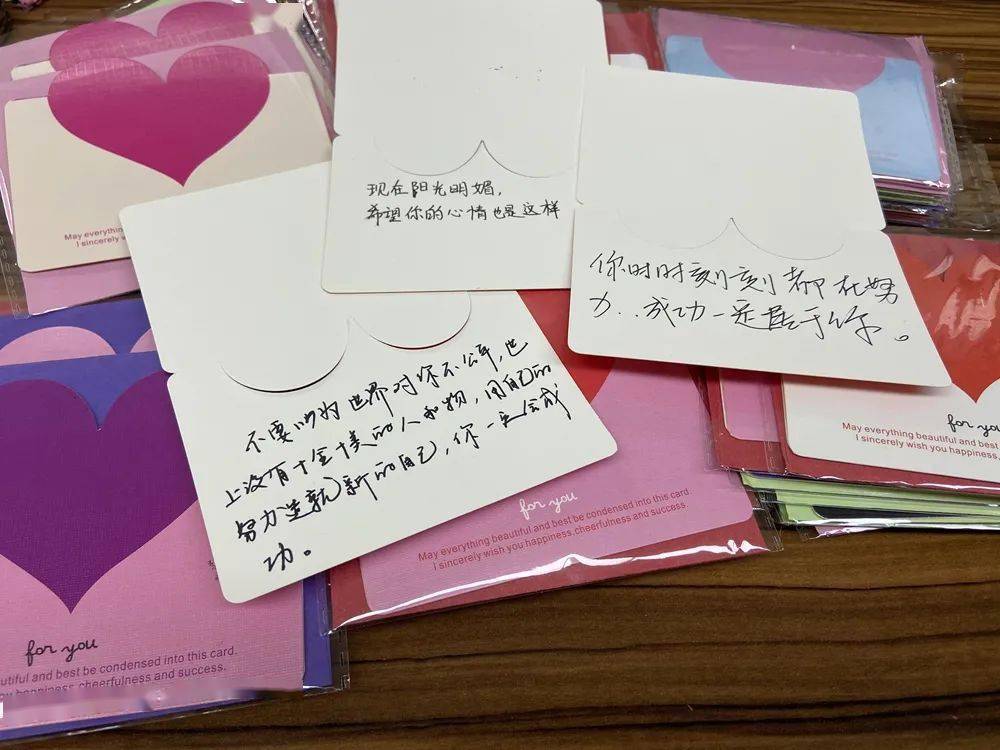 May everything
I sincerely wish
现在阳光明媚，
希望你的心情也是这样
你时时刻刻都在努
力..成功一定属于你。
不要以为世界对你不公平，世
上没有十全十美的人和物，用自己的
努力造就新的自己，你一定会成
功。
for you
May everything beautiful and best be condensed into this card.
I sincerely wish you happiness,cheerfulness and success
for you
May everything beautiful and best be conden
I sincerely wish you happiness,
for you
utiful and best be condensed into this card.
you happiness,cheerfulness and success.